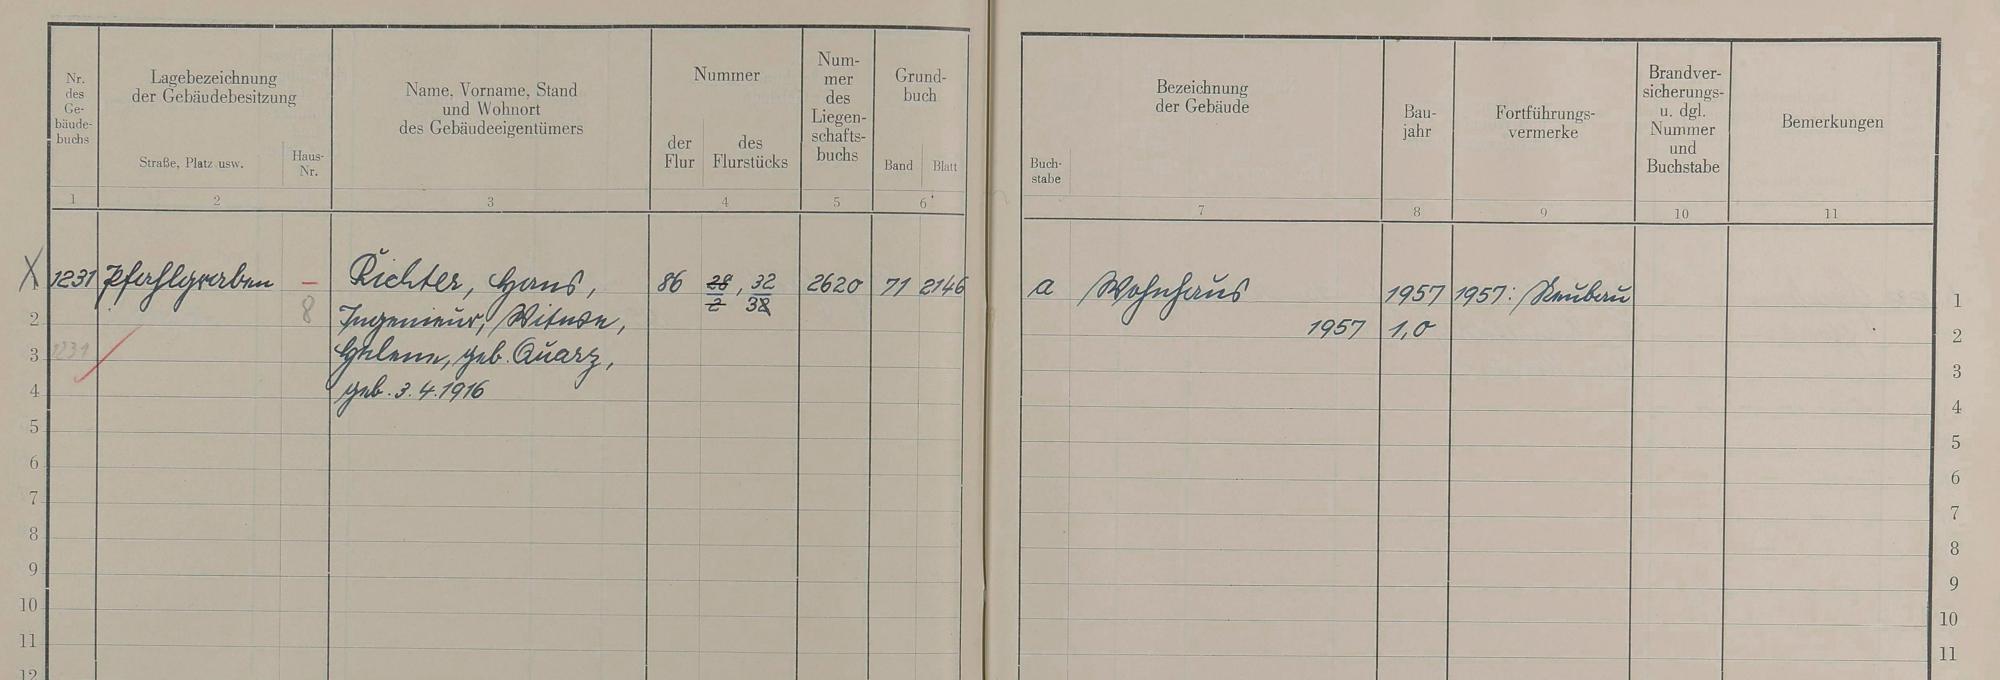 Nr. des Ge- bäude- buchs
Lagebezeichnung
der Gebäudebesitzung
Straße, Platz usw.
Haus-
Nr.
Name, Vorname, Stand
und Wohnort
des Gebäudeeigentümers
Nummer
der
Flur
des
Flurstücks
Num-
mer
des
Liegen-
schafts-
buchs
Grund-
buch
Band
Blatt
1 2 3 4 5 6
Buch-
stabe
Bezeichnung
der Gebäude
Bau-
jahr
Fortführungs-
vermerke
Brandver-
sicherungs-
u. dgl.
Nummer
und
Buchstabe
Bemerkungen
7 8 9 10 11
X 1 1231 Pfahlgraben – Richter, Hans, 86 28/2, 32/38 2620 71 2146
2 8 Ingenieur, Witwe,
3 1231 Helene, geb. Quarz,
4 geb. 3.4.1916
5
6
7
8
9
10
11
12
a Wohnhaus 1957 1957: Neubau 1
1957 1,0 2
3
4
5
6
7
8
9
10
11